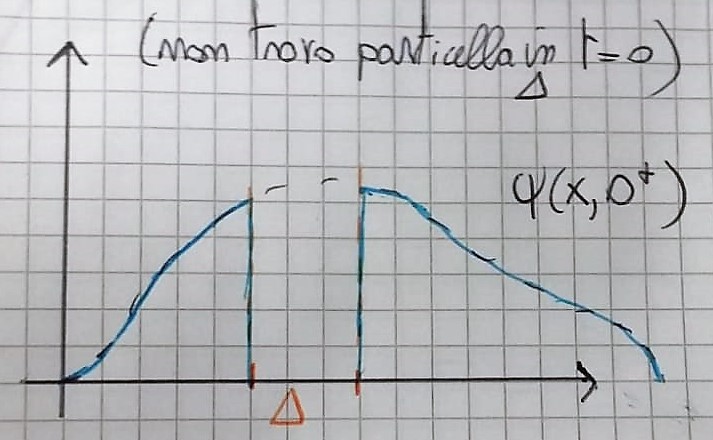 (non trovo particella in t=0)
Δ
ψ(x,0⁺)
Δ